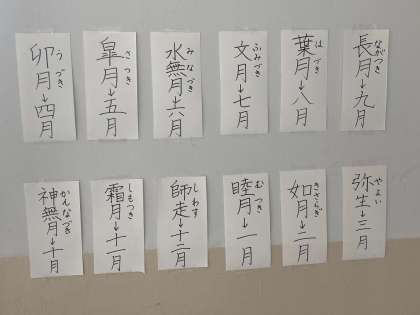 卯月→四月
うづき
皐月→五月
さつき
水無月→六月
みなづき
文月→七月
ふみづき
葉月→八月
はづき
長月→九月
ながつき
神無月→十月
かんなづき
霜月→十一月
しもつき
師走→十二月
しわす
睦月→一月
むつき
如月→二月
きさらぎ
弥生→三月
やよい